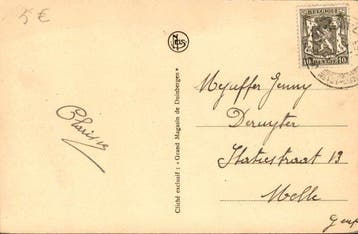 5 €
NELS
BELGIQUE
10 10
Clarisse
Cliché exclusif : « Grand Magasin de Duinbergen »
Mejuffer Jenny
Deruyter
Statiestraat 13
Melle